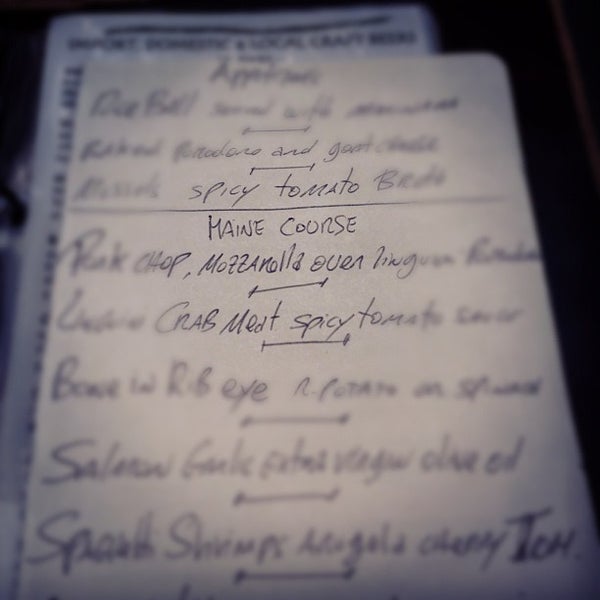 IMPORT, DOMESTIC & LOCAL CRAFT BEERS
Appetizers
Rice Ball served with
and goat cheese
Mussels spicy tomato Broth
MAINE COURSE
Pork CHOP, MOZZARella over linguini
CRAB Meat spicy tomato sauce
Bone in Rib eye R. POTATO or SPINACH
Salmon Garlic Extra virgin olive oil
Spaghetti Shrimps Arugola cherry Tom.